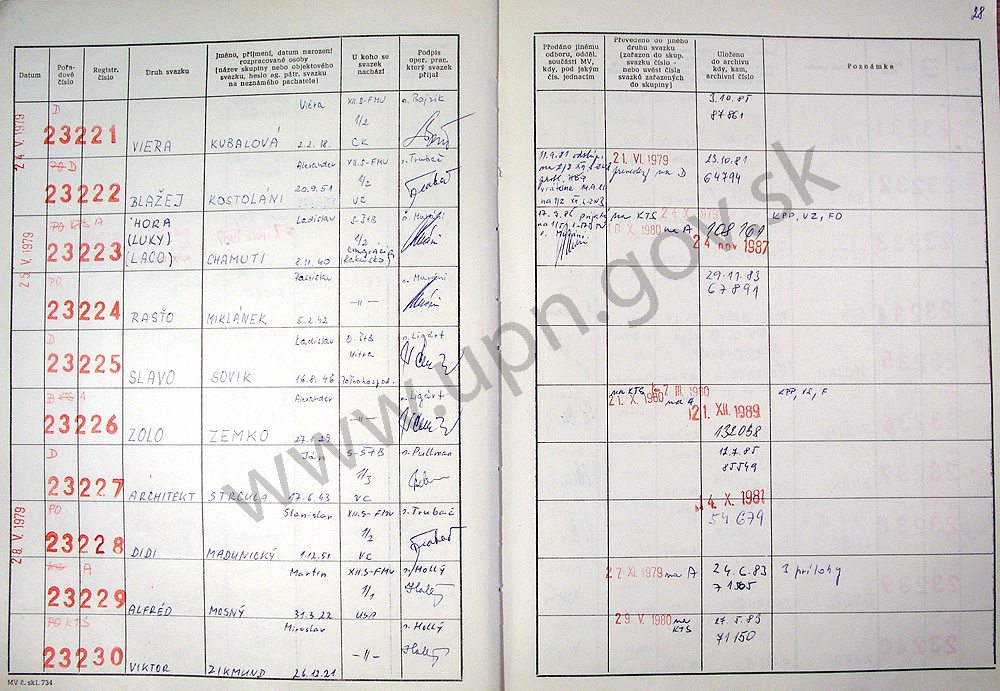 28
Datum
Pořadové číslo
Registr. číslo
Druh svazku
Jméno, příjmení, datum narození rozpracované osoby (název skupiny nebo objektového svazku, heslo ag. pátr. svazku na neznámého pachatele)
U koho se svazek nachází
Podpis oper. prac. který svazek přijal
Předáno jinému odboru, odděl. součásti MV, kdy, pod jakým čís. jednacím
Převedeno do jiného druhu svazku (zařazen do skup. svazku číslo - nebo uvést čísla svazků zařazených do skupiny)
Uloženo do archivu kdy, kam, archivní číslo
Poznámka
24 V. 1979
D
23221
VIERA
Viera
KUBALOVÁ 2.2.18.
XII.S-FMV
1/2
CK
n. Bojzík
3.10.85
87861
PO D
23222
BLAŽEJ
Alexander
KOSTOLÁNI 20.9.51
XII.S-FMV
1/2
VC
n. Trubač
21. VI. 1979
prevedený na D
23.10.81
64794
25 V. 1979
PO KTS A
23223
HORA
(LUKY)
(LACO)
Ladislav
CHAMUTI 2.11.40
S.ŠtB
1/2
n. Muráni
na KTS 24 X 1979
10 X. 1980 na A
108161
24 nov 1987
KPP, VZ, FO
PO
23224
RASŤO
MIKLÁNEK 5.2.42
—"—
n. Muráni
29.11.83
67891
D
23225
SLAVO
Ladislav
SOVIK 16.8.46
O. ŠtB
Nitra
Poľnohospod.
n. Ligárt
D KTS A
23226
ZOLO
Alexander
ZEMKO 27.1.29
—"—
n. Ligárt
na KTS 7 III. 1980
21. X. 1980 na A
21. XII. 1989
132058
KPP, VZ, F
D
23227
ARCHITEKT
Ján
STRCULA 17.6.43
S-ŠTB
1/3
VC
n. Pullman
12.7.85
85549
28 V. 1979
PO
23228
DIDI
Stanislav
MADUNICKÝ 1.12.51
XII.S-FMV
1/2
VC
n. Trubač
14. X. 1981
54679
KTS A
23229
ALFRÉD
Martin
MOSNÝ 31.3.22
XII.S-FMV
1/1
USP
n. Hollý
27 XI. 1979 na A
24.6.83
71505
3 prílohy
PO KTŠ
23230
VIKTOR
Miroslav
ZIKMUND 26.12.21
—"—
n. Hollý
29. V. 1980 na KTS
27.5.83
71150
MV č. skl. 734
www.upn.gov.sk